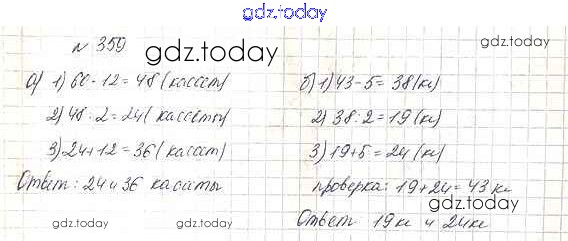 gdz.today
N 359
gdz.today
gdz.today
а) 1) 60 - 12 = 48 (кассет)
2) 48 : 2 = 24 (кассеты)
3) 24 + 12 = 36 (кассет)
Ответ: 24 и 36 кассеты
б) 1) 43 - 5 = 38 (кг)
2) 38 : 2 = 19 (кг)
3) 19 + 5 = 24 (кг)
проверка: 19 + 24 = 43 кг
Ответ 19 кг и 24 кг
gdz.today
gdz.today
gdz.today